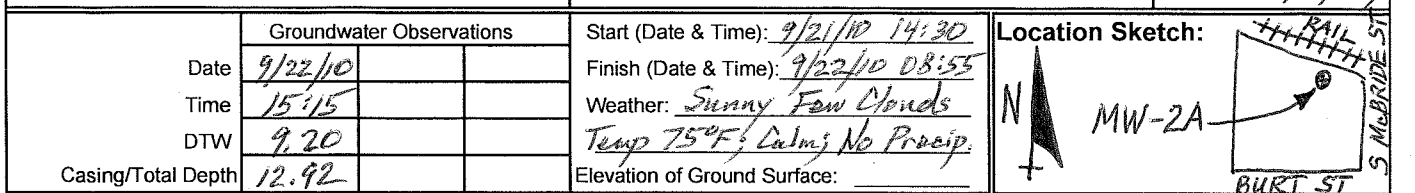 Groundwater Observations
Date 9/22/10
Time 15:15
DTW 9.20
Casing/Total Depth 12.92
Start (Date & Time): 9/21/10 14:30
Finish (Date & Time): 9/22/10 08:55
Weather: Sunny Few Clouds
Temp 75°F; Calm; No Precip.
Elevation of Ground Surface:
Location Sketch:
N
MW-2A
RAIL
S McBRIDE ST
BURT ST